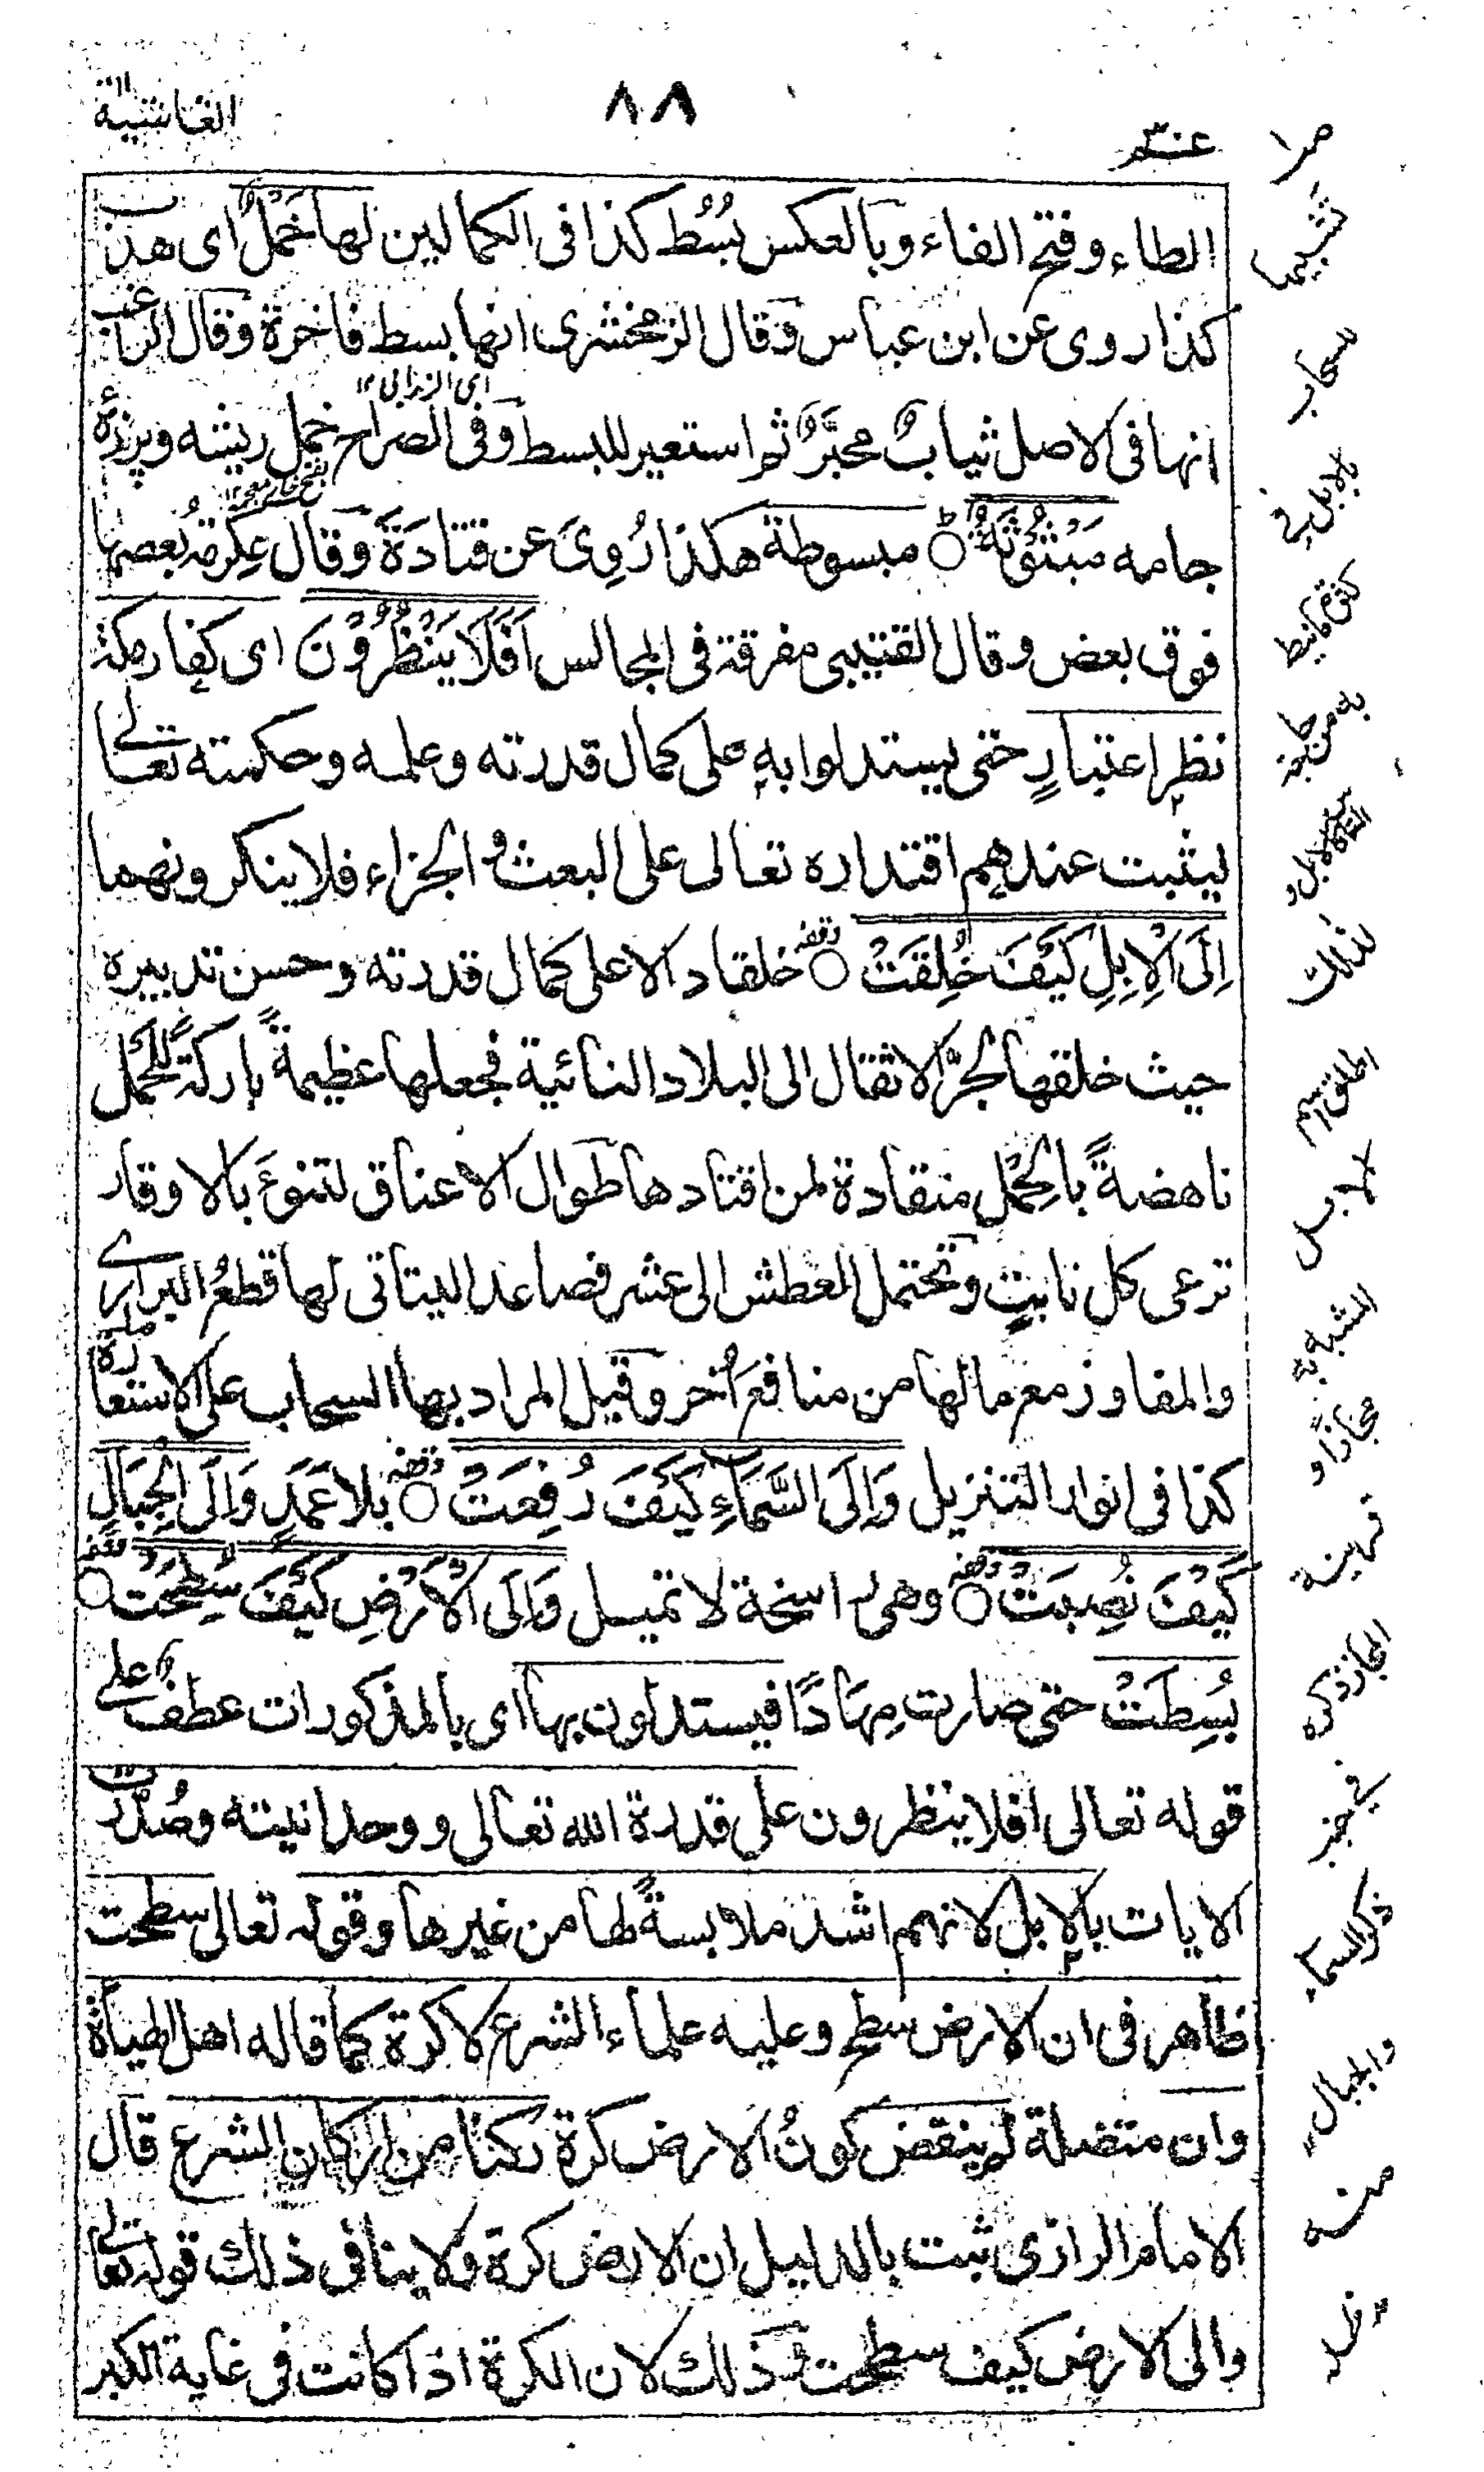 الغاشية
٨٨
عم ٣٠
الطاء وفتح الفاء وبالعكس بُسُط كذا فى الكمالين لها خَمْلٌ اى هدب
كذا روى عن ابن عباس وقال الزمخشرى انها بسط فاخرة وقال الراغب
انها فى الاصل ثيابٌ محبَّرةٌ ثم استعير للبسط وفى الصراح خمل ريشه وپرزهٔ
اى الزرابى ١٢
جامه مَبْثُوْثَةٌ ۝ مبسوطة هكذا رُوِىَ عن قتادَةَ وقال عِكرمةُ بعضها
بفتح خاء معجمه ١٢
فوق بعض وقال القتيبى مفرقة فى المجالس اَفَلَا يَنْظُرُوْنَ اى كفار مكة
نظر اعتبارٍ حتى يستدلوا به على كمال قدرته وعلمه وحكمته تعالى
ليثبت عندهم اقتداره تعالى على البعث والجزاء فلا ينكرونهما
اِلَى الْاِبِلِ كَيْفَ خُلِقَتْ ۝ وقفه خلقا دالا على كمال قدرته وحسن تدبيره
حيث خلقها لجرِّ الاثقال الى البلاد النائية فجعلها عظيمةً باركةً للحَمْل
ناهضةً بالحِمْل منقادة لمن اقتادها طوال الاعناق لتنوءَ بالاوقار
ترعى كل نابتٍ وتحتمل العطش الى عشر فصاعدا ليتاتى لها قطعُ البرارى
والمفاوز مع مالها من منافعَ اُخر وقيل المراد بها السحاب على الاستعارة
كذا فى انوار التنزيل وَاِلَى السَّمَآءِ كَيْفَ رُفِعَتْ ۝ وقفه بلا عَمَدٍ وَاِلَى الْجِبَالِ
كَيْفَ نُصِبَتْ ۝ وقفه وهى راسخة لا تميل وَاِلَى الْاَرْضِ كَيْفَ سُطِحَتْ ۝ وقفه
بُسِطَتْ حتى صارت مِهَادًا فيستدلون بها اى بالمذكورات عطف على
قوله تعالى افلا ينظرون على قدرة الله تعالى ووحدانيته وصُدِّرت
الايات بالابل لانهم اشد ملابسةً لها من غيرها وقوله تعالى سطحت
ظاهر فى ان الارض سطح وعليه علماء الشرع لا كرة كما قاله اهل الهيأة
وان متصلة لم ينقض كونُ الارض كرة ركنا من اركان الشرع قال
الامام الرازى ثبت بالدليل ان الارض كرة ولا ينافى ذلك قوله تعالى
والى الارض كيف سطحت وذلك لان الكرة اذا كانت فى غاية الكبر
تشبيها
سحاب
بالابل فى
لذلك
المشبه به
مجازا و
قرينة
المجاز ذكره
فى خبر
ذكر السماء
والجبال